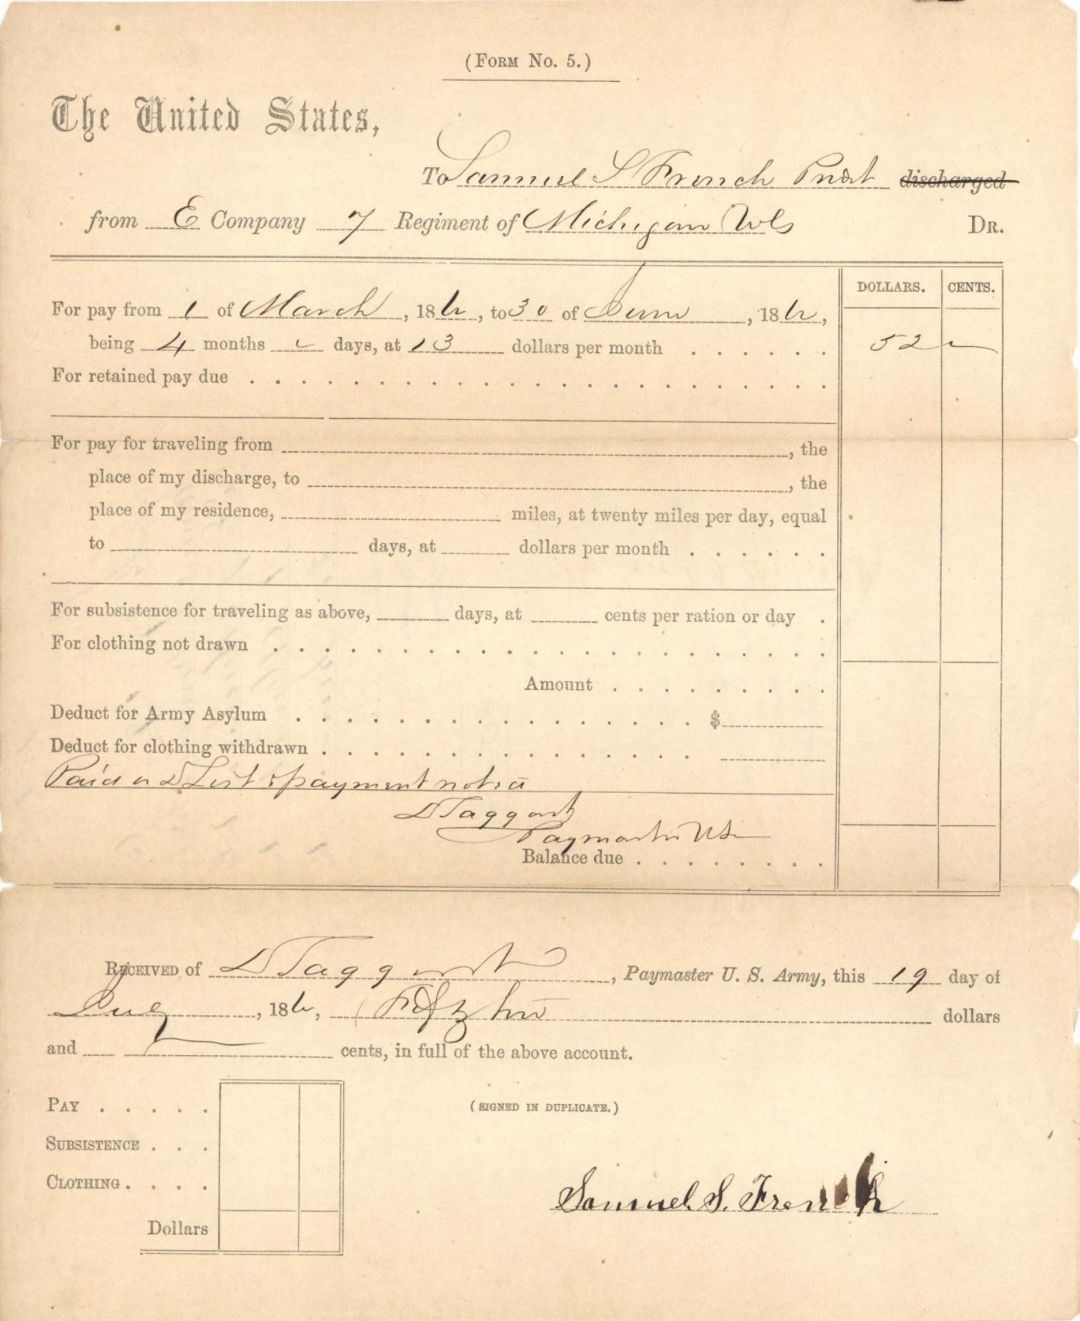 (Form No. 5.)
The United States,
To Samuel S French Privt discharged
from E Company 7 Regiment of Michigan Vols Dr.
DOLLARS. CENTS.
For pay from 1 of March, 186 , to 30 of June, 186 ,
being 4 months days, at 13 dollars per month . . . . . . 52
For retained pay due . . . . . . . . . . . . . . . . . . . .
For pay for traveling from , the
place of my discharge, to , the
place of my residence, miles, at twenty miles per day, equal
to days, at dollars per month . . . . . .
For subsistence for traveling as above, days, at cents per ration or day .
For clothing not drawn . . . . . . . . . . . . . . . . . . .
Amount . . . . . . . . .
Deduct for Army Asylum . . . . . . . . . . . . . . . . . $
Deduct for clothing withdrawn . . . . . . . . . . . . . . .
Paid payment noted
D Taggart
Paymaster USA
Balance due . . . . . . . .
Received of D Taggart, Paymaster U. S. Army, this 19 day of
July, 186 , Fifty two dollars
and cents, in full of the above account.
Pay . . . . .
(SIGNED IN DUPLICATE.)
Subsistence . . .
Clothing . . . .
Samuel S. French
Dollars